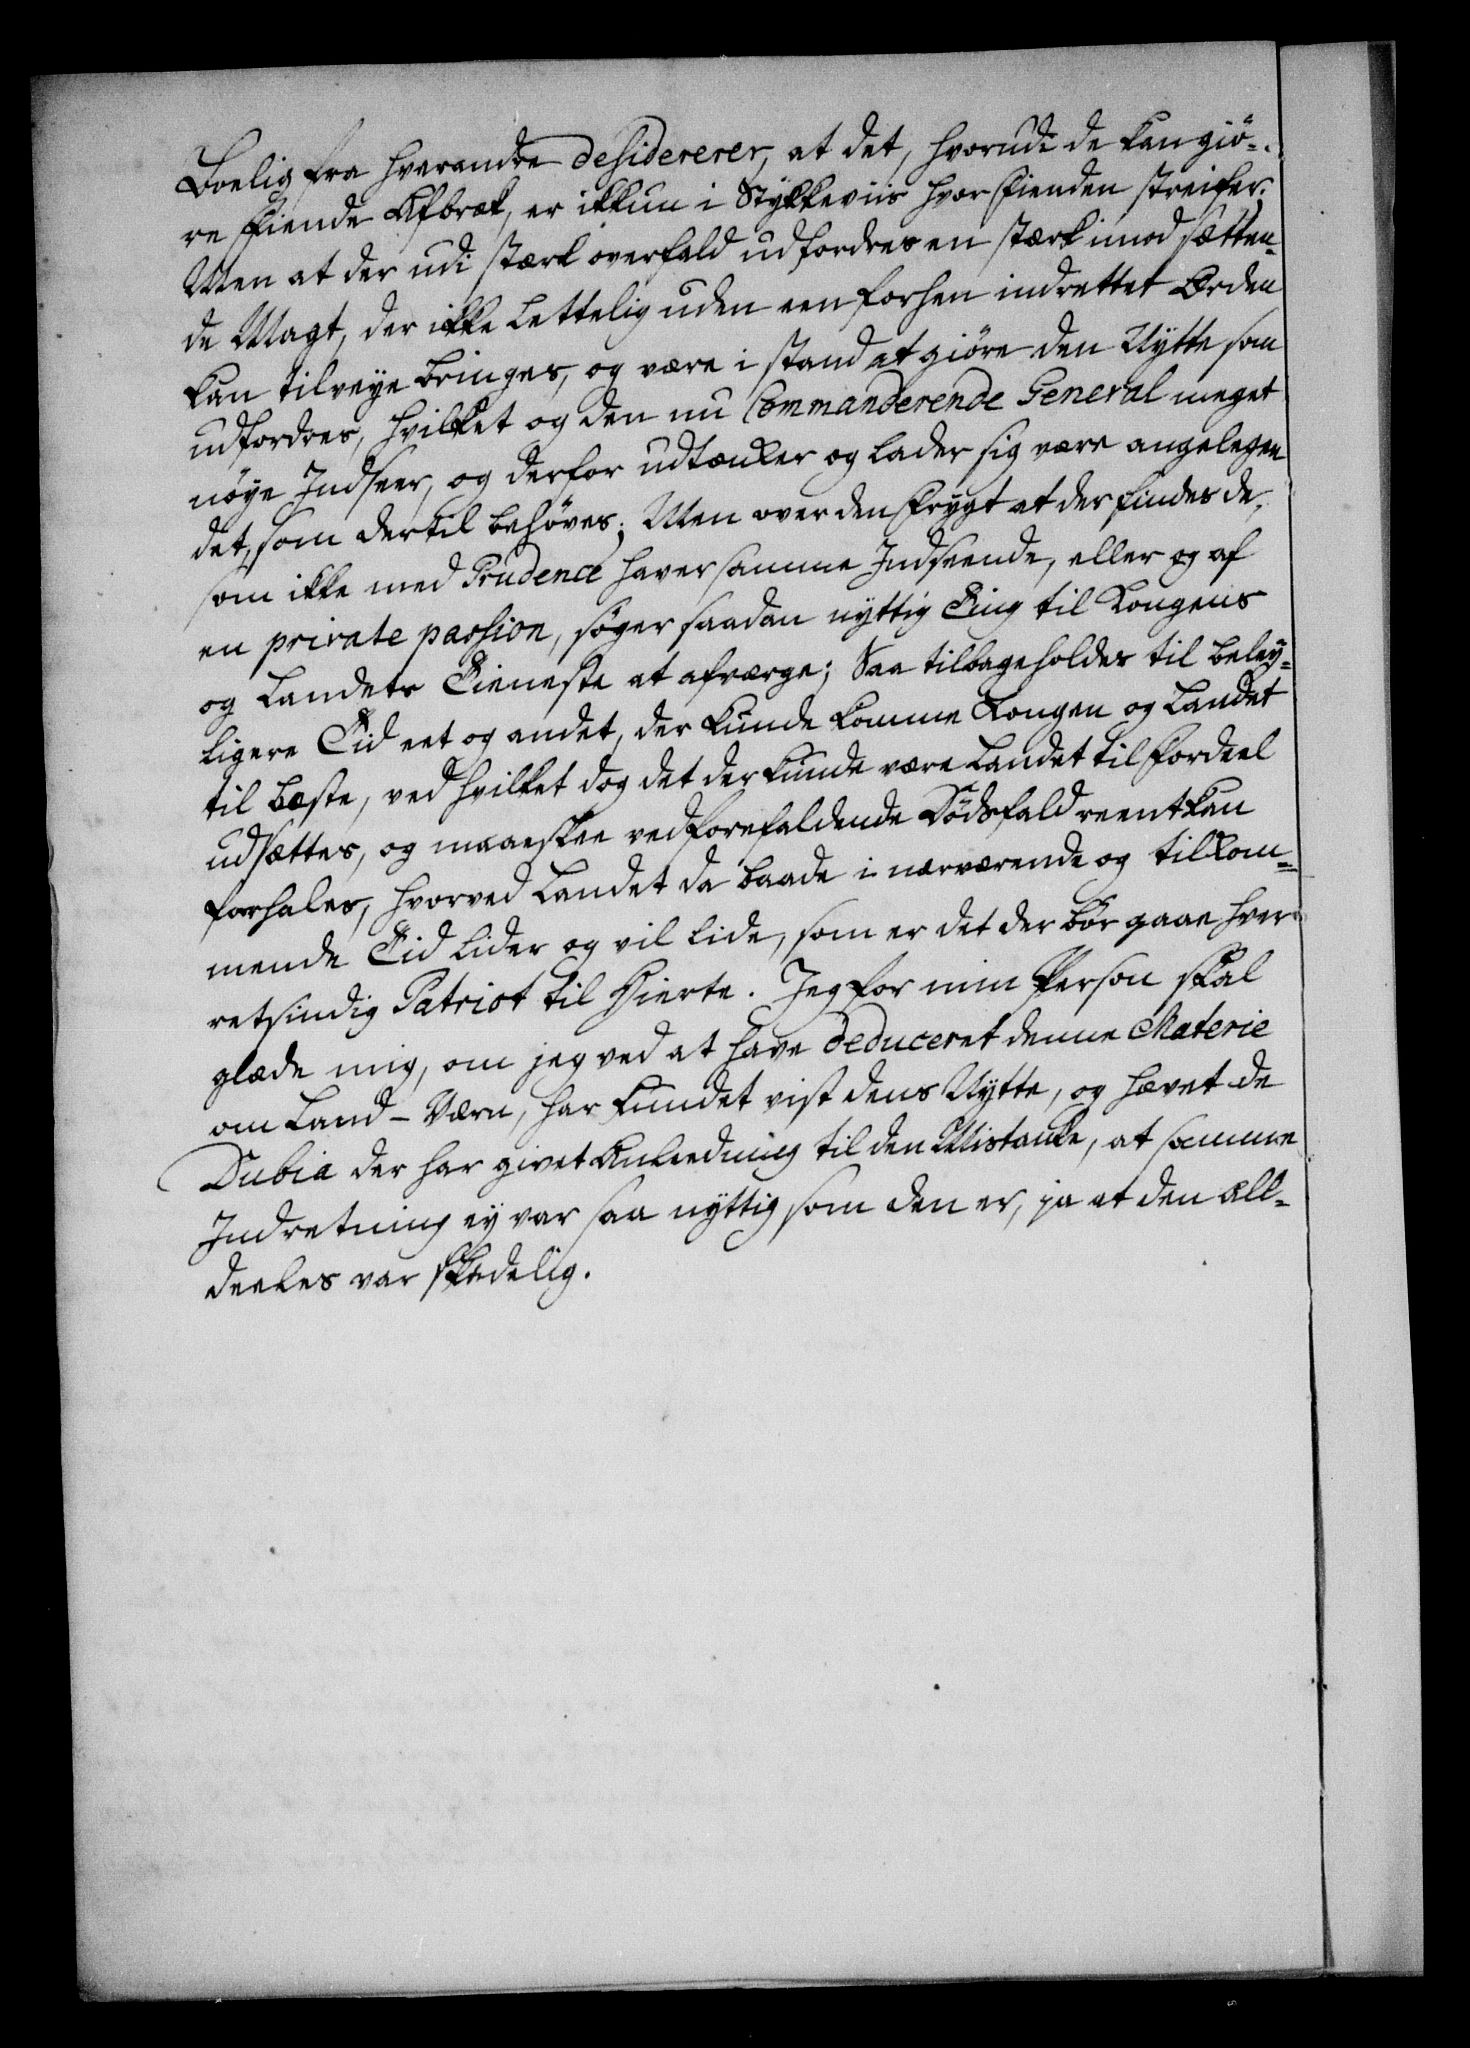 Boelig fra hverandre desidererer, at det, hvorudi de kan giö-
re Fiende Afbræk, er ikkun i Stykkeviis hvor Fienden streifer;
Men at der udi stærk overfald udfordres en stærk imod sætten-
de Magt, der ikke lettelig uden een forhen indrettet Orden
kan tilveye bringes, og være i stand at giöre den Nytte som
udfordres, hvilket og den nu Commanderende General meget
nöye Indseer, og derfor udtænker og lader sig være angelegen
det, som dertil behöves; Men over den Frygt at der findes de,
som ikke med Prudence haver samme Indseende, eller og af
en private passion, söger saadan nyttig Ting til Kongens
og Landets Tieneste at afværge; Saa tilbageholdes til beley-
ligere Tid eet og andet, der kunde komme Kongen og Landet
til bæste, ved hvilket dog det der kunde være Landet til fordeel
udsættes, og maaeskee ved forefaldende Dödsfald reent kan
forhales, hvorved Landet da baade i nærværende og tilkom-
mende Tid lider og vil lide, som er det der bör gaae hver
retsindig Patriot til Hierte. Jeg for min Person skal
glæde mig, om jeg ved at have deduceret denne Materie
om Land-Værn, har kundet vist dens Nytte, og hævet de
Dubia der har givet Anleedning til den Mistanke, at samme
Indretning ey var saa nyttig som den er, ja at den all-
deeles var skadelig.